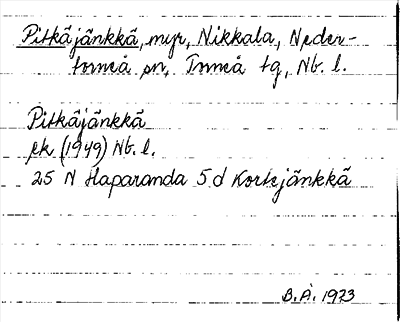 Pitkäjänkkä, myr, Nikkala, Neder-
torneå sn, Torneå tg, Nb. l.
Pitkäjänkkä
ek (1949) Nb. l.
25 N Haparanda 5 d Korkjänkkä
B.Å. 1973